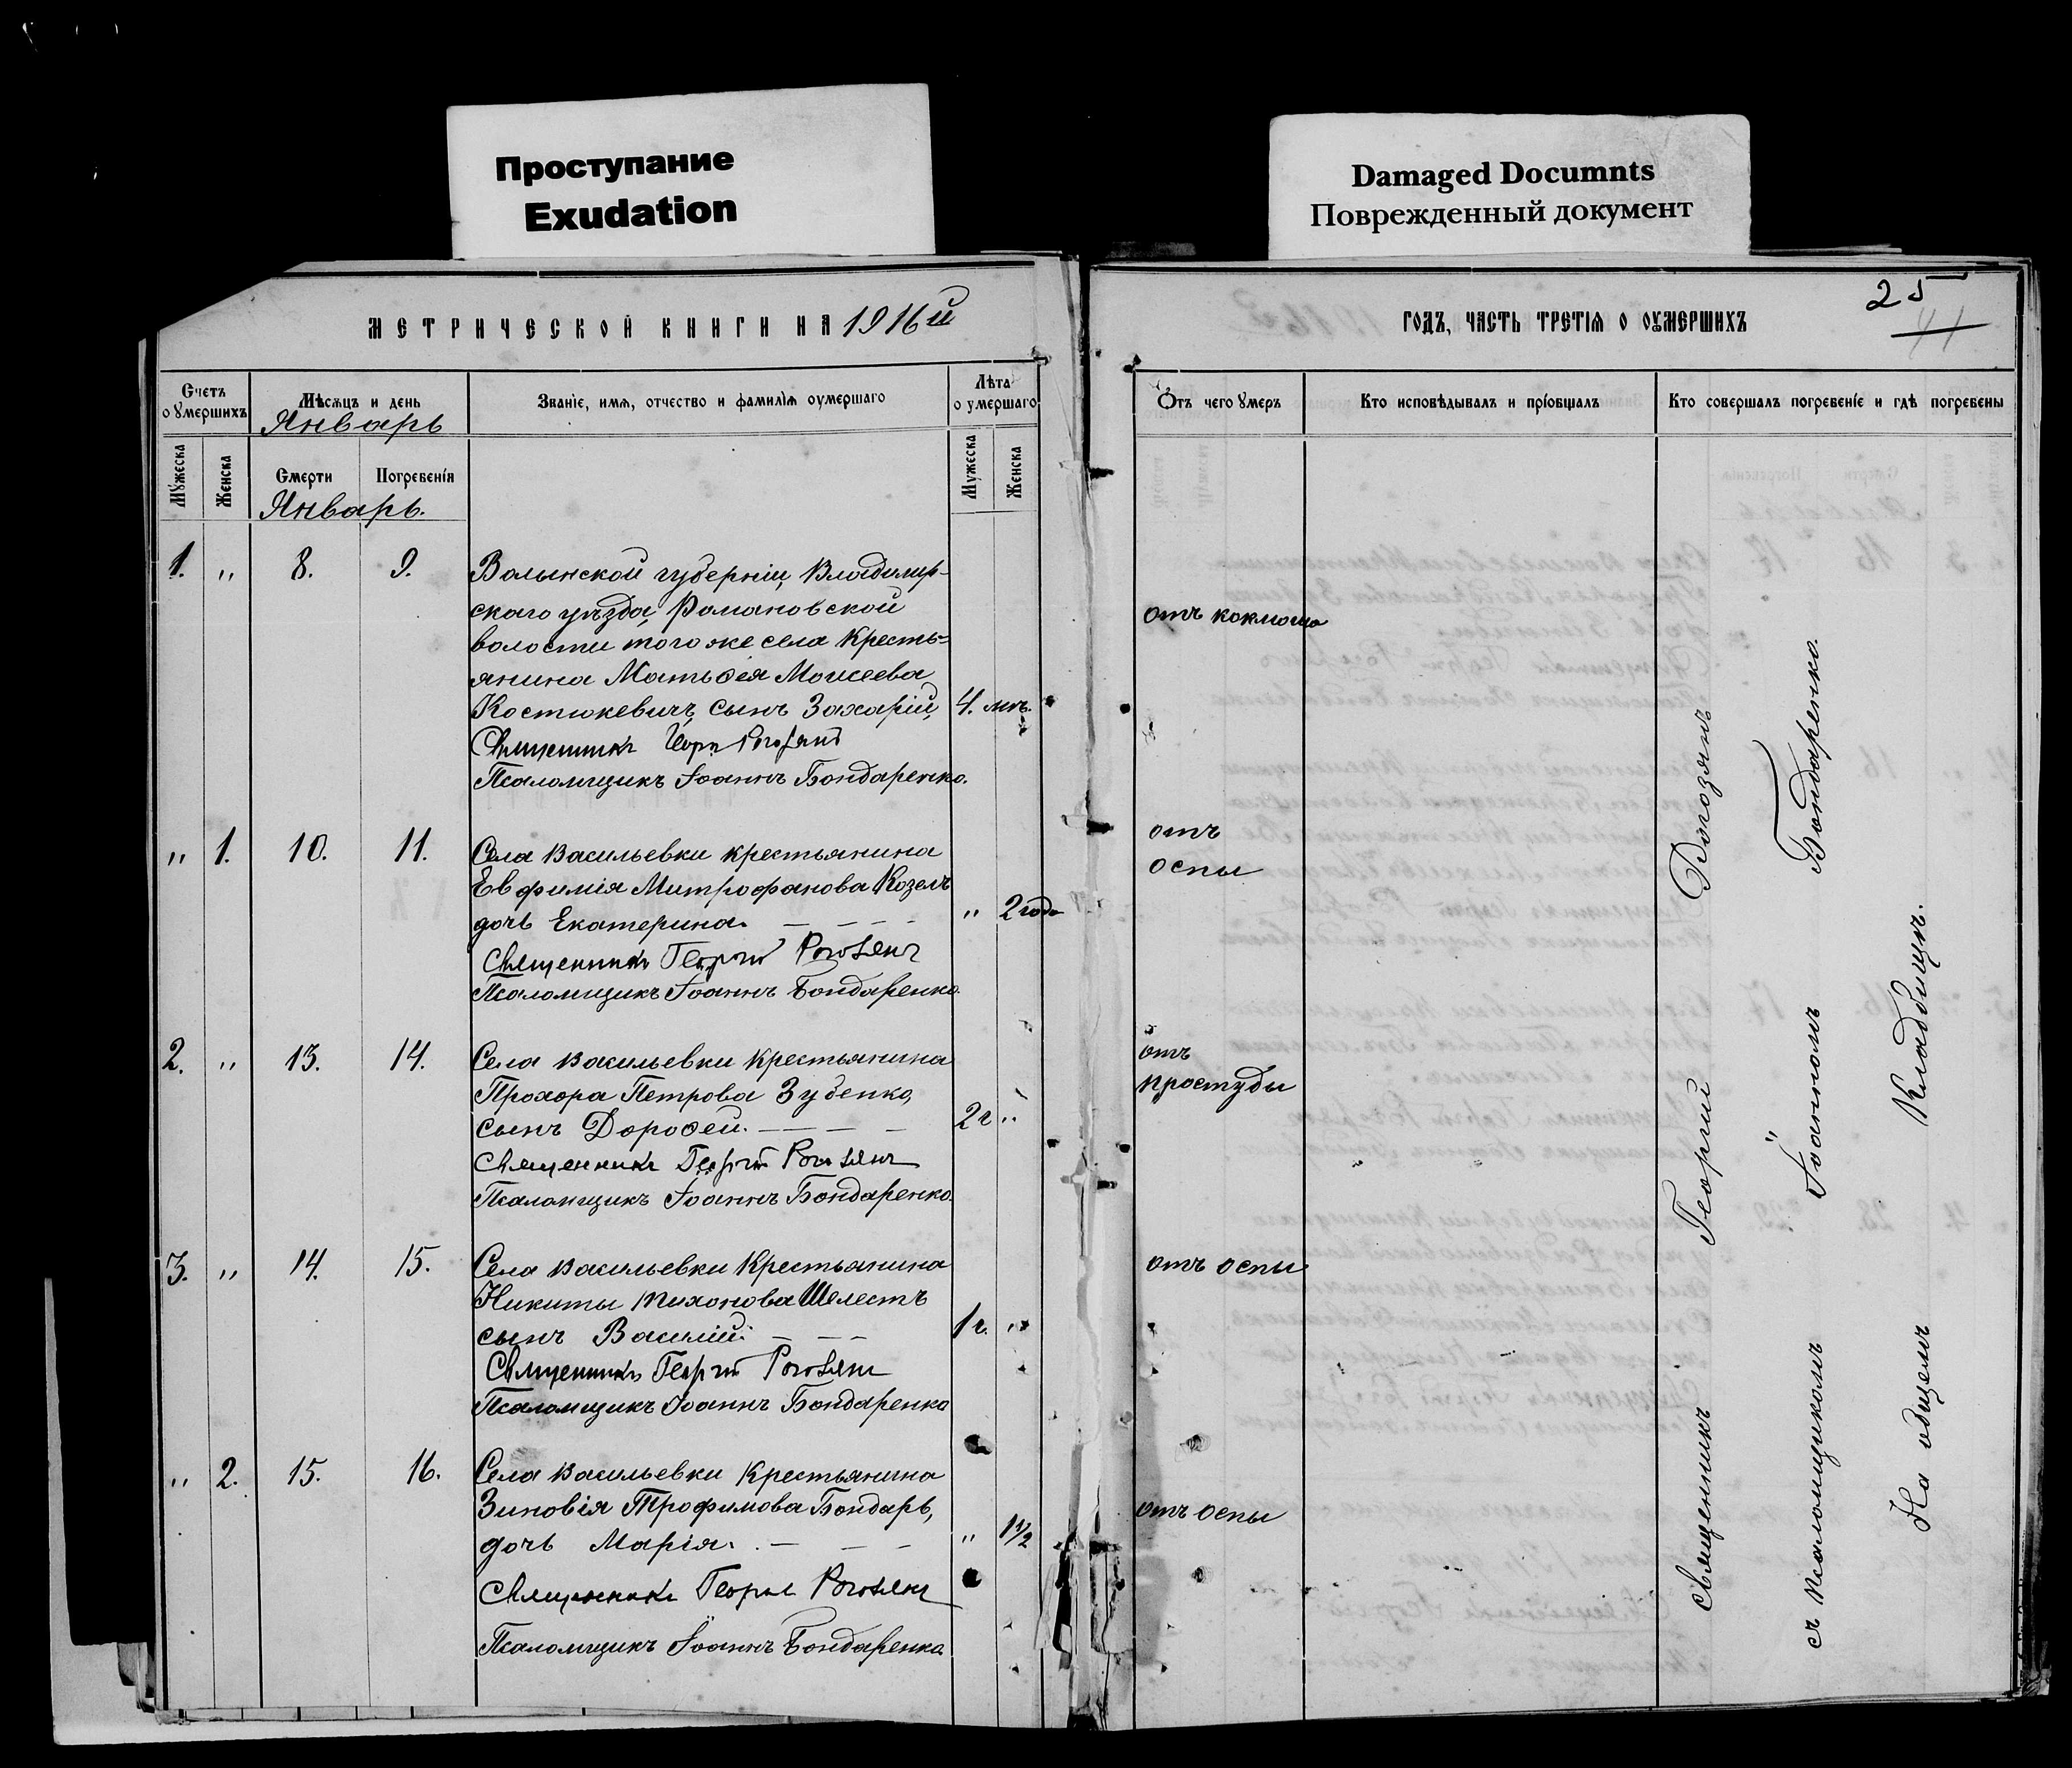 Проступание
Exudation
Damaged Documnts
Поврежденный документ
МЕТРИЧЕСКОЙ КНИГИ НА 1916й
Счетъ
оумершихъ
Мѣсяцъ и день
Январь
Званіе, имя, отчество и фамилія оумершаго
Лѣта
оумершаго
Мужеска
Женска
Смерти
Погребенія
Январь.
Мужеска
Женска
1. " 8. 9.
Волынской губерніи, Владимир-
скаго уѣзда, Романовской
волости того же села кресть-
янина Матѳея Моисеева
Костюкевичъ, сынъ Захарій, 4. мѣ.
Священникъ
Псаломщикъ Іоаннъ Бондаренко.
" 1. 10. 11.
Села Васильевки крестьянина
Евфимія Митрофанова Козелъ
дочь Екатерина. " 2 года
Священникъ Георгій
Псаломщикъ Іоаннъ Бондаренко.
2. " 13. 14.
Села Васильевки крестьянина
Прохора Петрова Зубенко,
сынъ Дороѳей. 2 г "
Священникъ Георгій
Псаломщикъ Іоаннъ Бондаренко.
3. " 14. 15.
Села Васильевки Крестьянина
Никиты Тихонова Шелестъ
сынъ Василій. 1 г. "
Священникъ Георгій
Псаломщикъ Іоаннъ Бондаренко
" 2. 15. 16.
Села Васильевки Крестьянина
Зиновія Трофимова Бондарь,
дочь Марія. " 1 1/2
Священникъ Георгій
Псаломщикъ Іоаннъ Бондаренко
25
41
ГОДЪ, ЧАСТЬ ТРЕТІЯ О ОУМЕРШИХЪ
Отъ чего умеръ
Кто исповѣдывалъ и пріобщалъ
Кто совершалъ погребеніе и гдѣ погребены
отъ коклюша
отъ
оспы
отъ
простуды
отъ оспы
отъ оспы
Священникъ Георгий
съ псаломщикомъ Іоанномъ Бондаренко.
На общемъ Кладбищѣ.